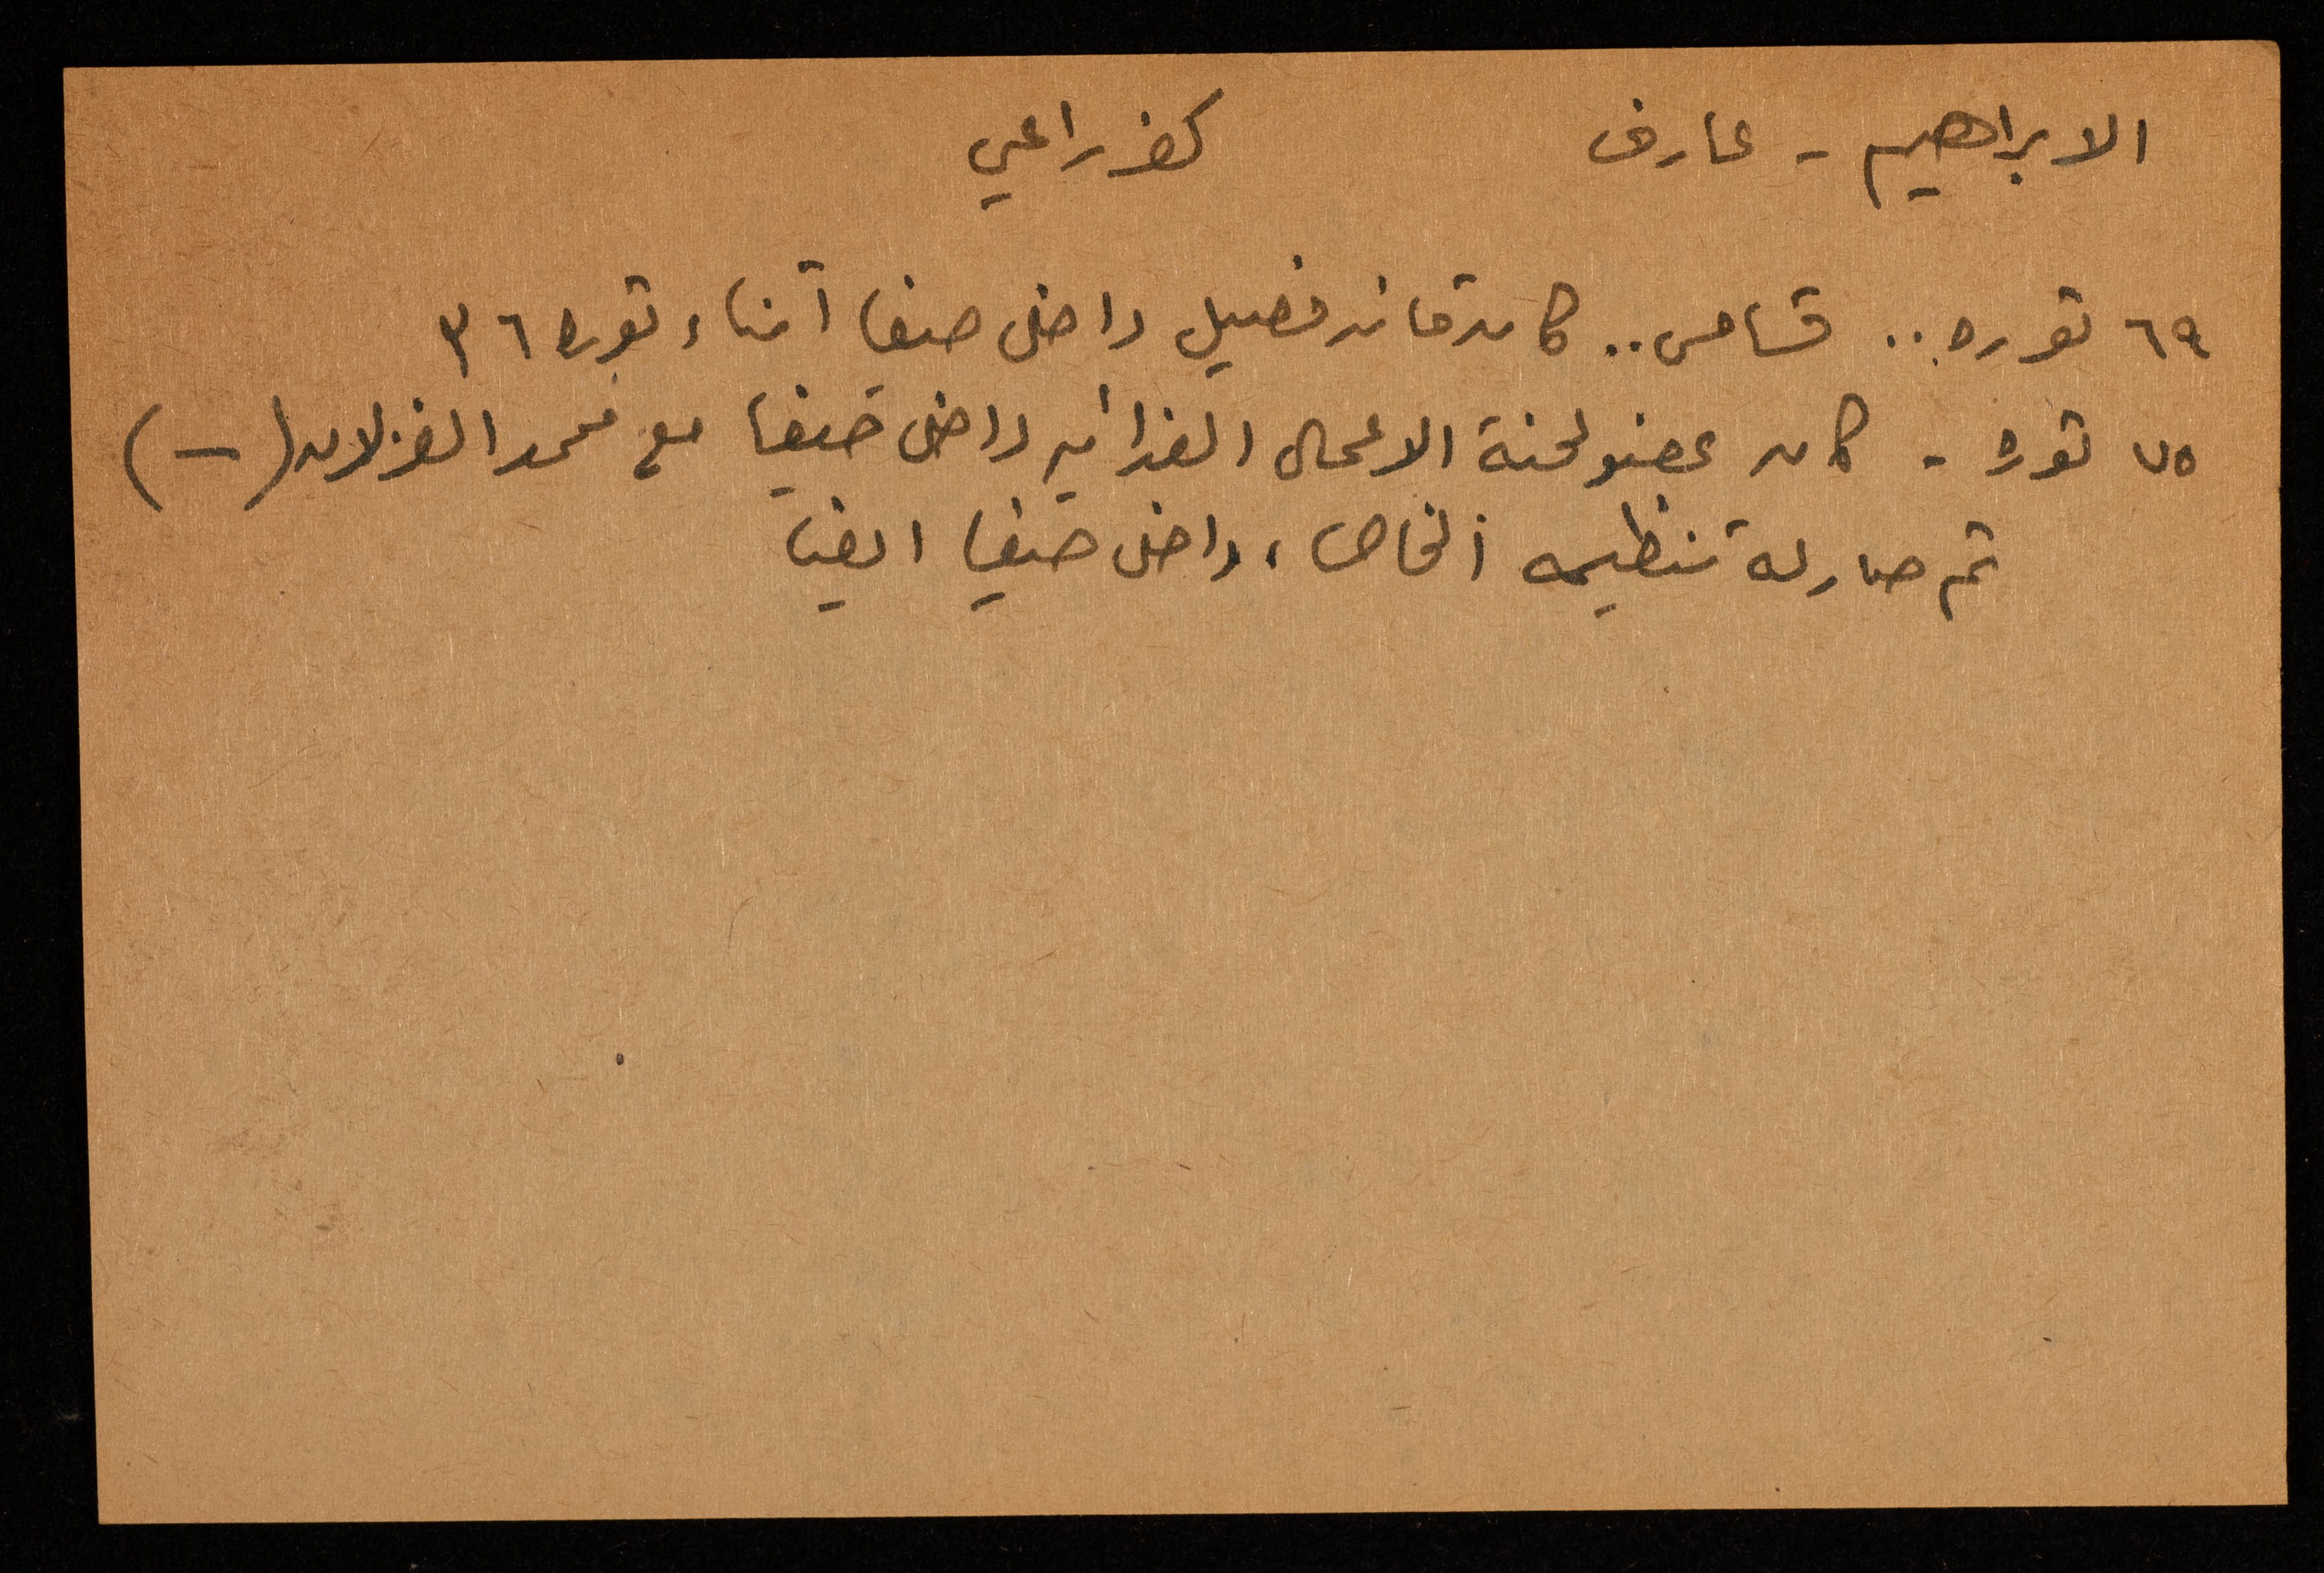 الابراهيم - عارف كفر راعي
٦٩ ثوره .. قسامي .. كان قائد فصيل داخل حيفا أثناء ثورة ٣٦
٧٥ ثوره - كان عضو لجنة الاعمال الفدائيه داخل حيفا مع محمد الغزلان (-)
ثم صار له تنظيمه الخاص، داخل حيفا ايضا